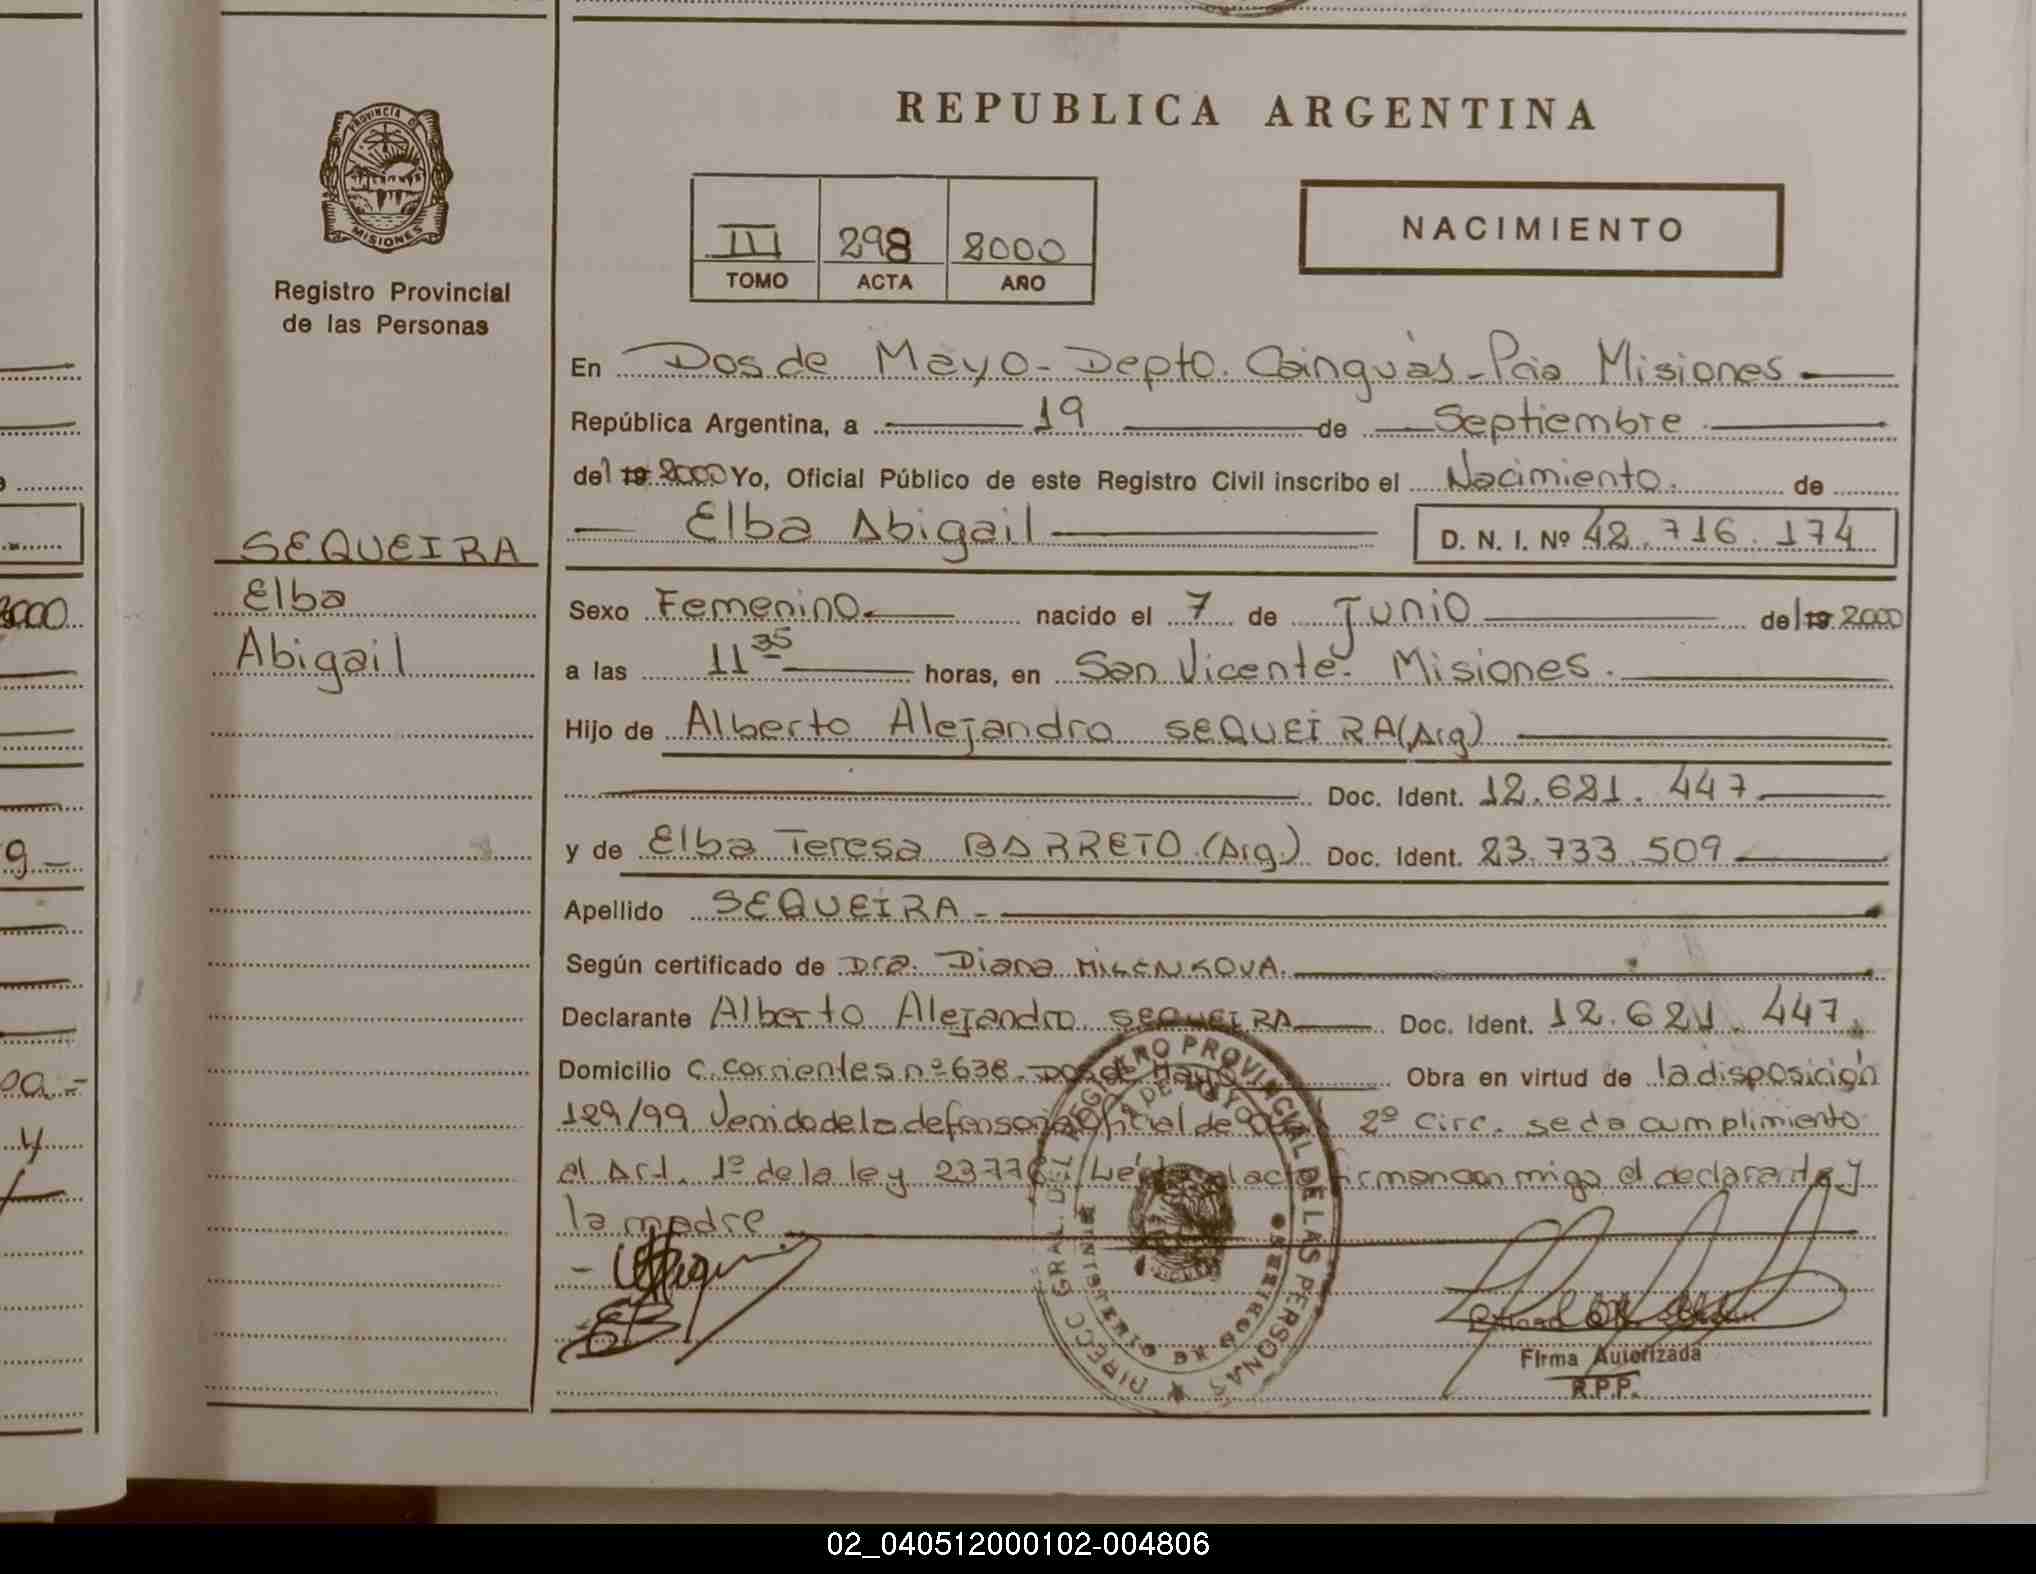 PROVINCIA DE
MISIONES
Registro Provincial
de las Personas
SEQUEIRA
Elba
Abigail
REPUBLICA ARGENTINA
III 298 2000
TOMO ACTA AÑO
NACIMIENTO
En Dos de Mayo - Depto. Cainguàs - Pcia Misiones
República Argentina, a 19 de Septiembre
del 19 2000 Yo, Oficial Público de este Registro Civil inscribo el Nacimiento. de
Elba Abigail D. N. I. Nº 42.716.174
Sexo Femenino nacido el 7 de Junio del 19 2000
a las 11 35 horas, en San Vicente. Misiones.
Hijo de Alberto Alejandro SEQUEIRA (Arg)
Doc. Ident. 12.621.447
y de Elba Teresa BARRETO (Arg.) Doc. Ident. 23.733.509
Apellido SEQUEIRA -
Según certificado de Dra. Diana MILENKOVA.
Declarante Alberto Alejandro SEQUEIRA Doc. Ident. 12.621.447
Domicilio C. Corrientes nº 638 - Dos de Mayo Obra en virtud de la disposición
129/99 Venido de la defensoria Oficial de 2º Circ. se da cumplimiento
el Art. 1º de la ley 23776 Leída el acta firman conmigo el declarante y
la madre
DIRECC. GRAL. DEL REGISTRO PROVINCIAL DE LAS PERSONAS
2 DE MAYO
MINISTERIO DE GOBIERNO
Firma Autorizada
R.P.P.
2000
02_040512000102-004806